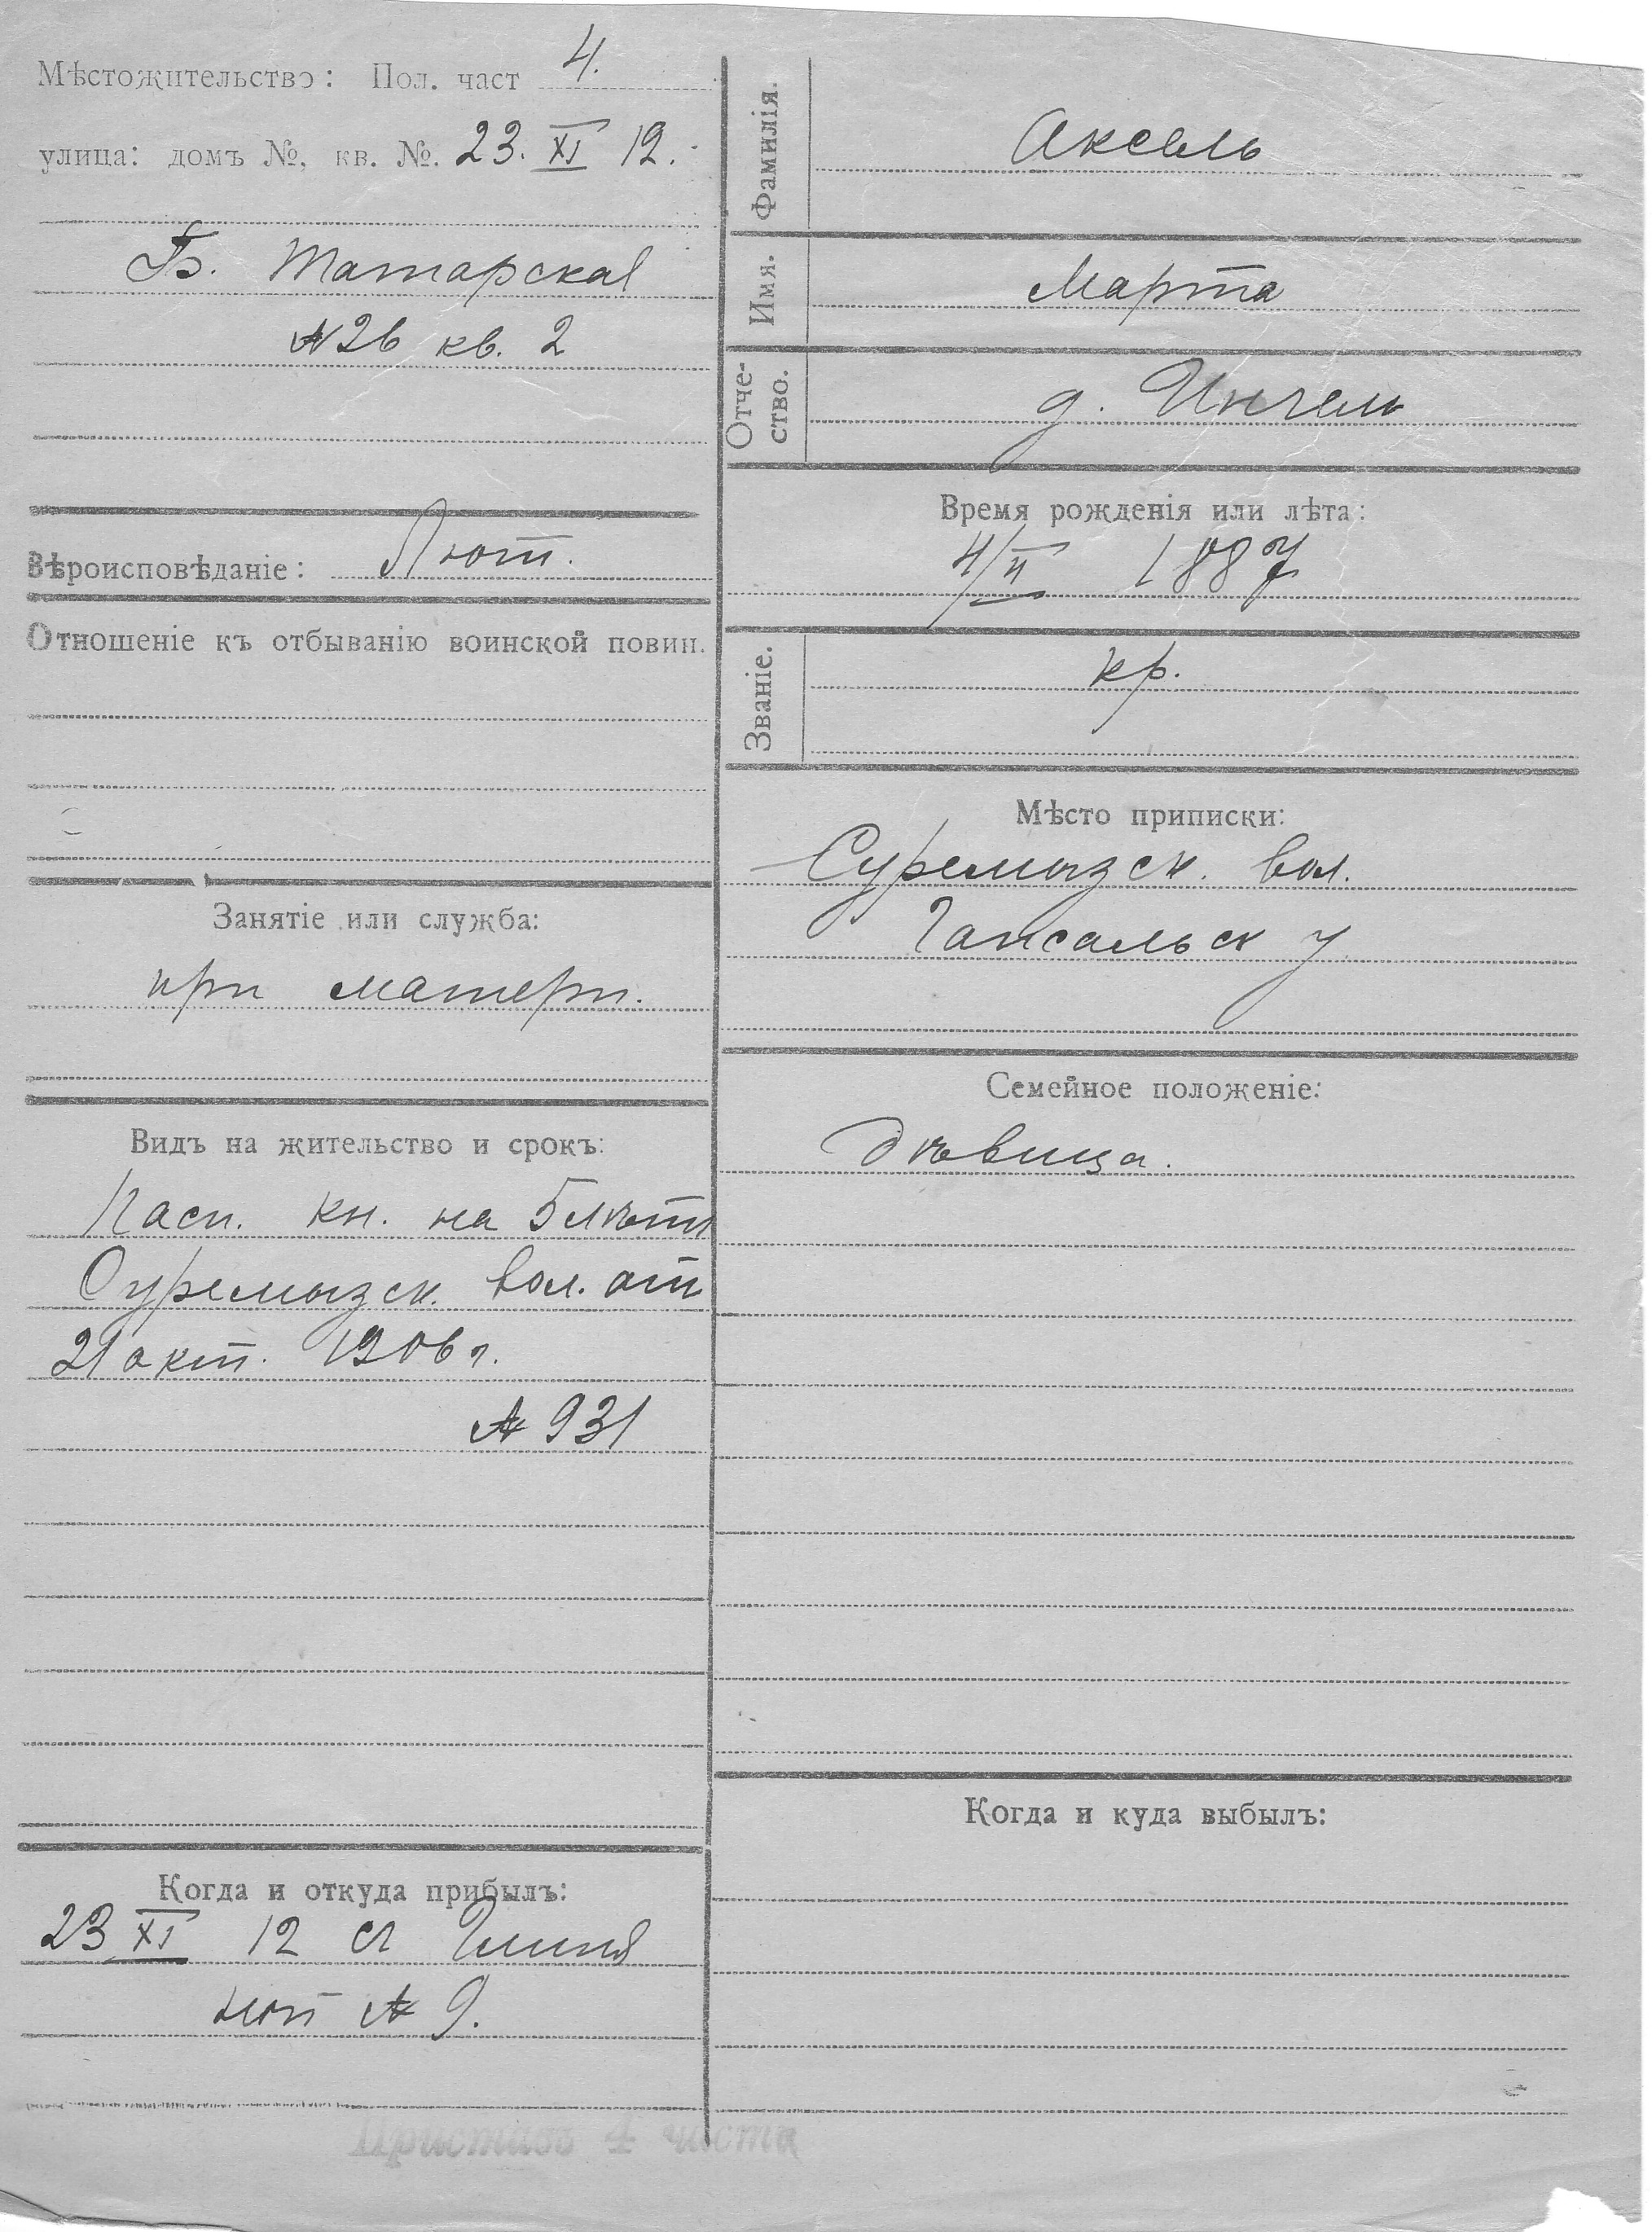 Мѣстожительство: Пол. част 4.
улица: домъ №, кв. №. 23. XI 12.
Б. Татарская
№ 26 кв. 2
Вѣроисповѣданіе: Лют.
Отношеніе къ отбыванію воинской повин.
Занятіе или служба:
при матери.
Видъ на жительство и срокъ:
Пасп. кн. на 5 лѣтъ
Суремызск. вол. от
21 окт. 1906 г.
№ 931
Когда и откуда прибылъ:
23 XI 12 с
№ 9.
Приставъ 4 части
Фамилія.
Аксель
Имя.
Марта
Отче-
ство.
д. Ингель
Время рожденія или лѣта:
4/II 1887
Званіе.
кр.
Мѣсто приписки:
Суремызск. вол.
Гапсальск у
Семейное положеніе:
дѣвица.
Когда и куда выбылъ: